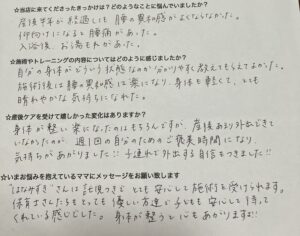 ☆当店に来てくださったきっかけは？どのようなことに悩んでいましたか？
産後半年が経過しても腰の違和感がよくならなかった。
仰向けになると腰痛があった。
入浴後、お湯もれがあった。
☆施術やトレーニングの内容についてはどのように感じましたか？
自分の身体がどういう状態なのか分かりやすく教えてもらえてよかった。
施術後は腰の違和感は楽になり、身体も軽くて、とても
晴れやかな気持ちになれた。
☆産後ケアを受けて嬉しかった変化はありますか？
身体が軽い楽になったのはもちろんですが、産後あまり外出できて
いなかったのが、週1回の自分のためのご褒美時間になり、
気持ちがあがりました!! 子連れで外出する自信もつきました!!
☆いまお悩みを抱えているママにメッセージをお願い致します
"はなやすぎ"さんは託児つきでとても安心して施術を受けられます。
保育士さんたちもとっても優しい方達で子どもも安心して待って
くれている感じでした。身体が整うと心もあがりますよ!!